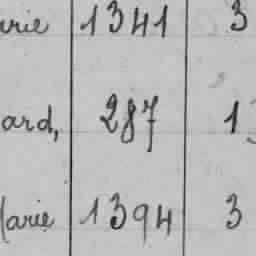 arie 1341 3
ard, 287 1
Marie 1394 3